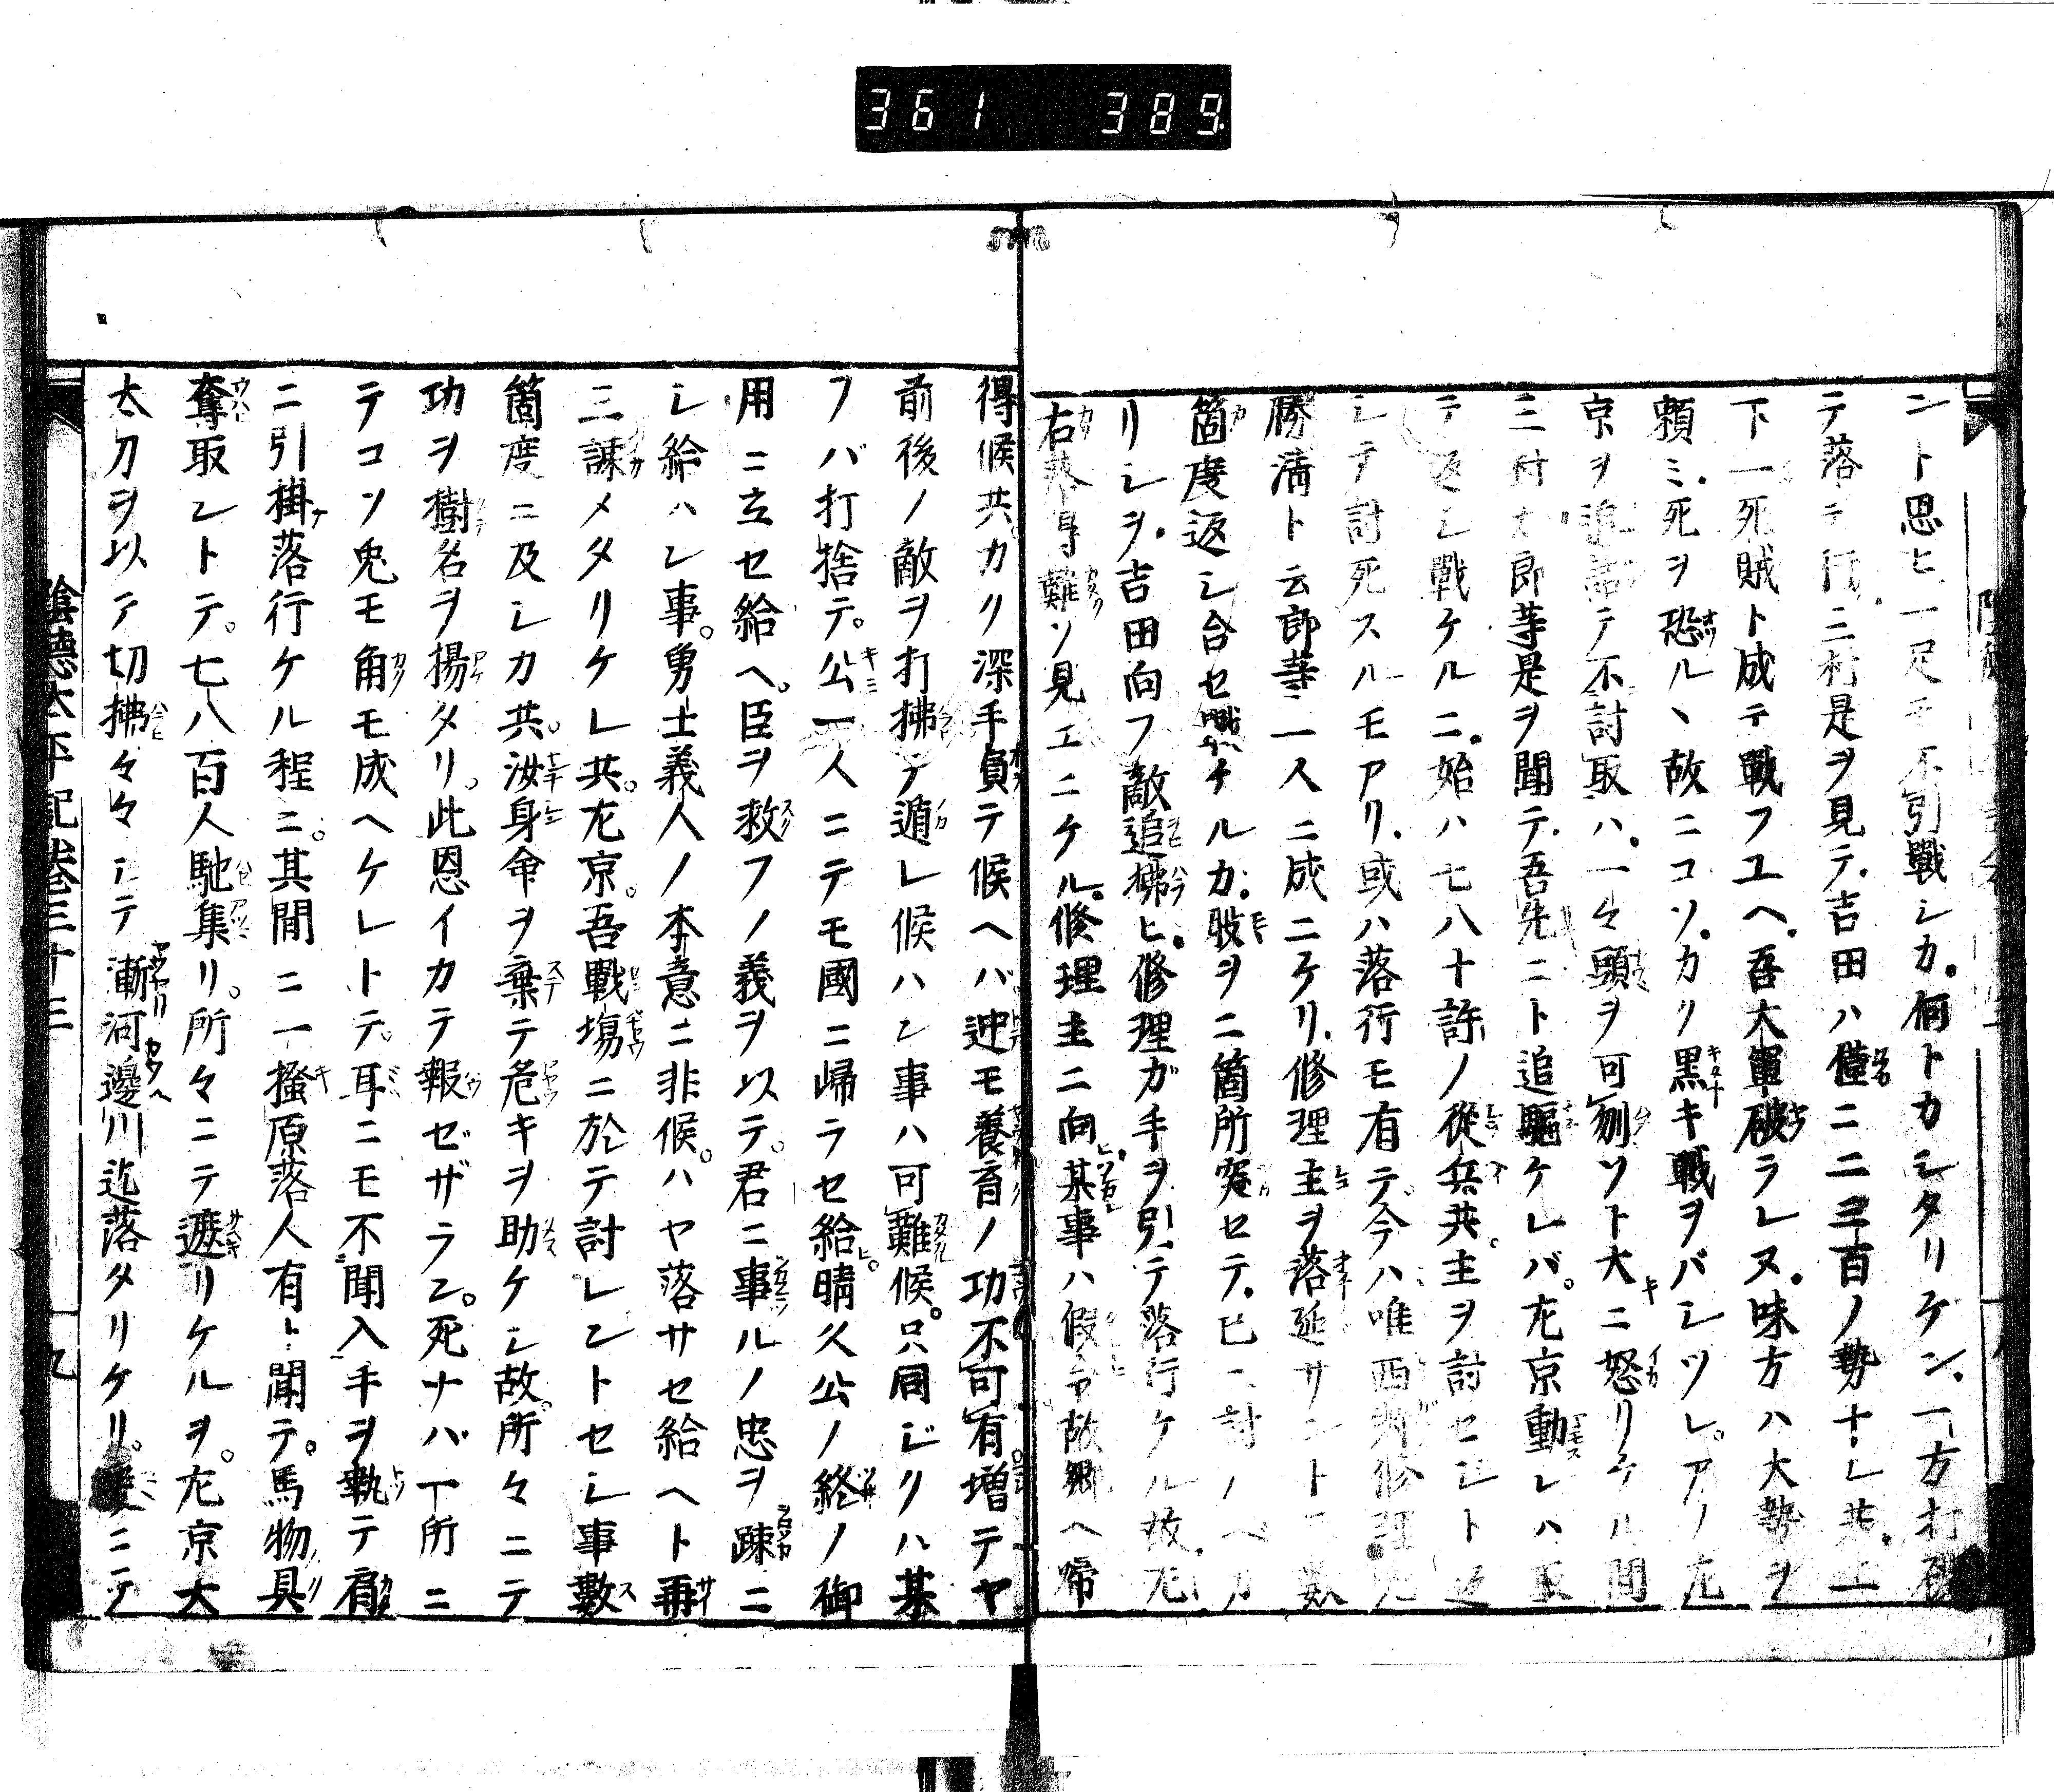 361 389
ント思ヒ一足モ不引戰シカ。何トカシタリケン。一方打破
テ落テ行。三村是ヲ見テ。吉田ハ僅ニ二三百ノ勢ナレ共。上
下一死賊ト成テ戰フユヘ。吾大軍破ラレヌ。味方ハ大勢ヲ
頼ミ。死ヲ恐ル、故ニコソ。カリ黒キ戰ヲバシツレ。アノ左
京ヲ追詰テ不討取ハ。一々頭ヲ可刎ソト大ニ怒リケル間
三村カ郎等是ヲ聞テ。吾先ニト追驅ケレバ。左京動レハ取
テ返シ戰ケルニ。始ハ七八十許ノ從兵共。主ヲ討セジト返
シテ討死スルモアリ。或ハ落行モ有テ。今ハ唯西郷修理亮
勝清ト云郎等一人ニ成ニケリ。修理主ヲ落延サント。數
箇度返シ合セ戰ヒケルカ。股ヲ二箇所突セテ。已ニ討ノベカ
リシヲ。吉田向フ敵追拂ヒ。修理ガ手ヲ引テ落行ケル故。
右ソ見エニケル。修理主ニ向。某事ハ假令故郷ヘ帰
得候共。カク深手負テ候ヘバ。迚モ養育ノ功不可有。増テヤ
前後ノ敵ヲ打拂テ遁レ候ハン事ハ可難候。只同ジクハ某
フバ打捨テ。公一人ニテモ國ニ帰ラセ給ヒ。晴久公ノ終ノ御
用ニ立セ給ヘ。臣ヲ救フノ義ヲ以テ。君ニ事ルノ忠ヲ踈ニ
シ給ハン事。勇士義人ノ本意ニ非候。ハヤ落サセ給ヘト再
三諌メタリケレ共。左京。吾戰塲ニ於テ討レントセシ事數
箇度ニ及シカ共。汝身命ヲ棄テ危キヲ助ケシ故。所々ニテ
功ヲ樹名ヲ揚タリ。此恩イカテ報ゼザラン。死ナバ一所ニ
テコソ兎モ角モ成ヘケレトテ。耳ニモ不聞入手ヲ執テ肩
ニ引掛落行ケル程ニ。其間ニ一揆原落人有ト聞テ。馬物具
奪取ントテ。七八百人馳集リ。所々ニテ遮リケルヲ。左京大
太刀ヲ以テ切拂々々シテ漸河邊川迄落タリケリ。爰ニテ
陰徳太平記卷三十三
九